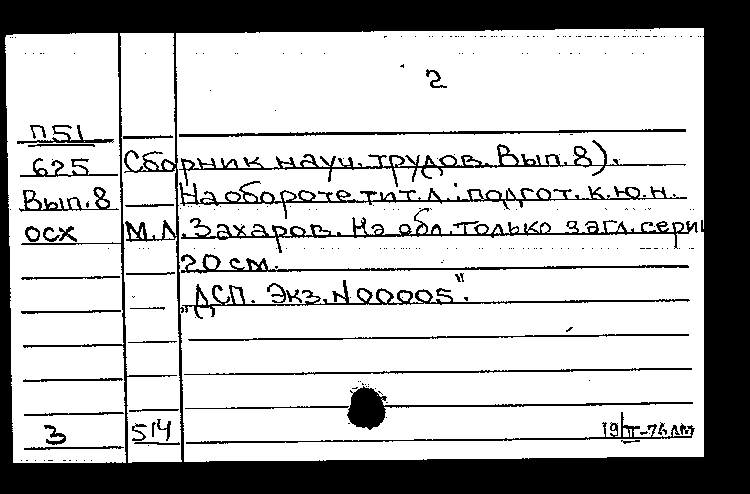 2
П51
625 Сборник науч. трудов. Вып. 8).
Вып. 8 На обороте тит. л.: подгот. к.ю.н.
осх М.Л. Захаров. На обл. только загл. серии
20 см.
„ДСП. Экз. N 00005".
3 514 19/II-76